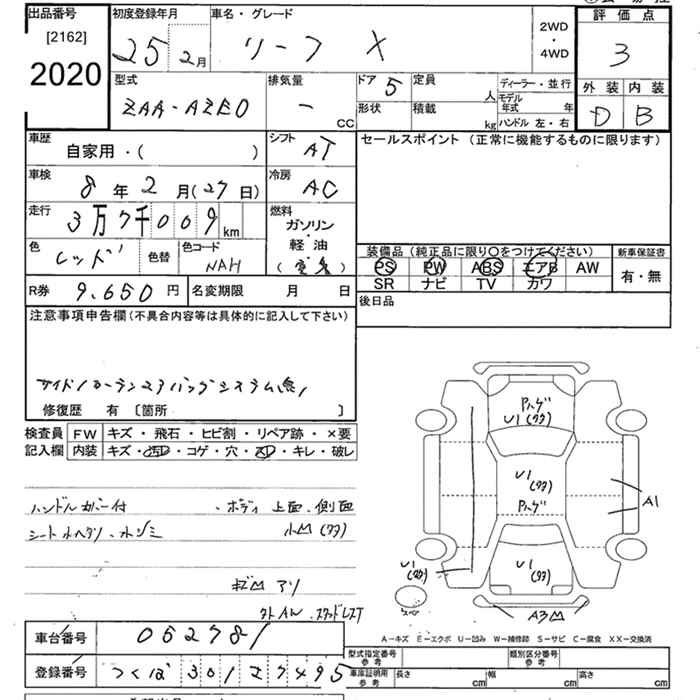 出品番号
[2162]
2020
初度登録年月
25 2月
車名・グレード
リーフ X
2WD
・
4WD
評価点
3
外装 内装
D B
型式
ZAA-AZE0
排気量
- CC
ドア 5
形状
定員 人
積載 kg
ディーラー・並行
モデル年式 年
ハンドル 左・右
車歴
自家用・( )
シフト
AT
セールスポイント (正常に機能するものに限ります)
車検
8年2月(27日)
冷房
AC
走行
3万7千009km
燃料
ガソリン
・
軽油
(電気)
色
レッド
色替
色コード
NAH
装備品 (純正品に限り〇をつけてください)
PS PW ABS エアB AW
SR ナビ TV カワ
新車保証書
有・無
R券 9.650円
名変期限 月 日
後日品
注意事項申告欄(不具合内容等は具体的に記入して下さい)
サイド/カーテンエアバッグシステム無/
修復歴 有 〔箇所 〕
検査員 FW キズ・飛石・ヒビ割・リペア跡・×要
記入欄 内装 キズ・汚D・コゲ・穴・スD・キレ・破レ
ハンドルカバー付
・ボディ 上面・側面
小凹(ワワ)
キズ凹アリ
外AW.スタッドレスT
Pハゲ
U1(ワワ)
U1
(ワワ)
Pハゲ
A1
U1
(ワワ)
U1
(ワワ)
A3凹
A-キズ E-エクボ U-凹み W-補修跡 S-サビ C-腐食 XX-交換済
車台番号 052781
登録番号 つくば 301 27495
型式指定番号
参考
類別区分番号
参考
車庫証明用
参考
長さ cm 幅 cm 高さ cm